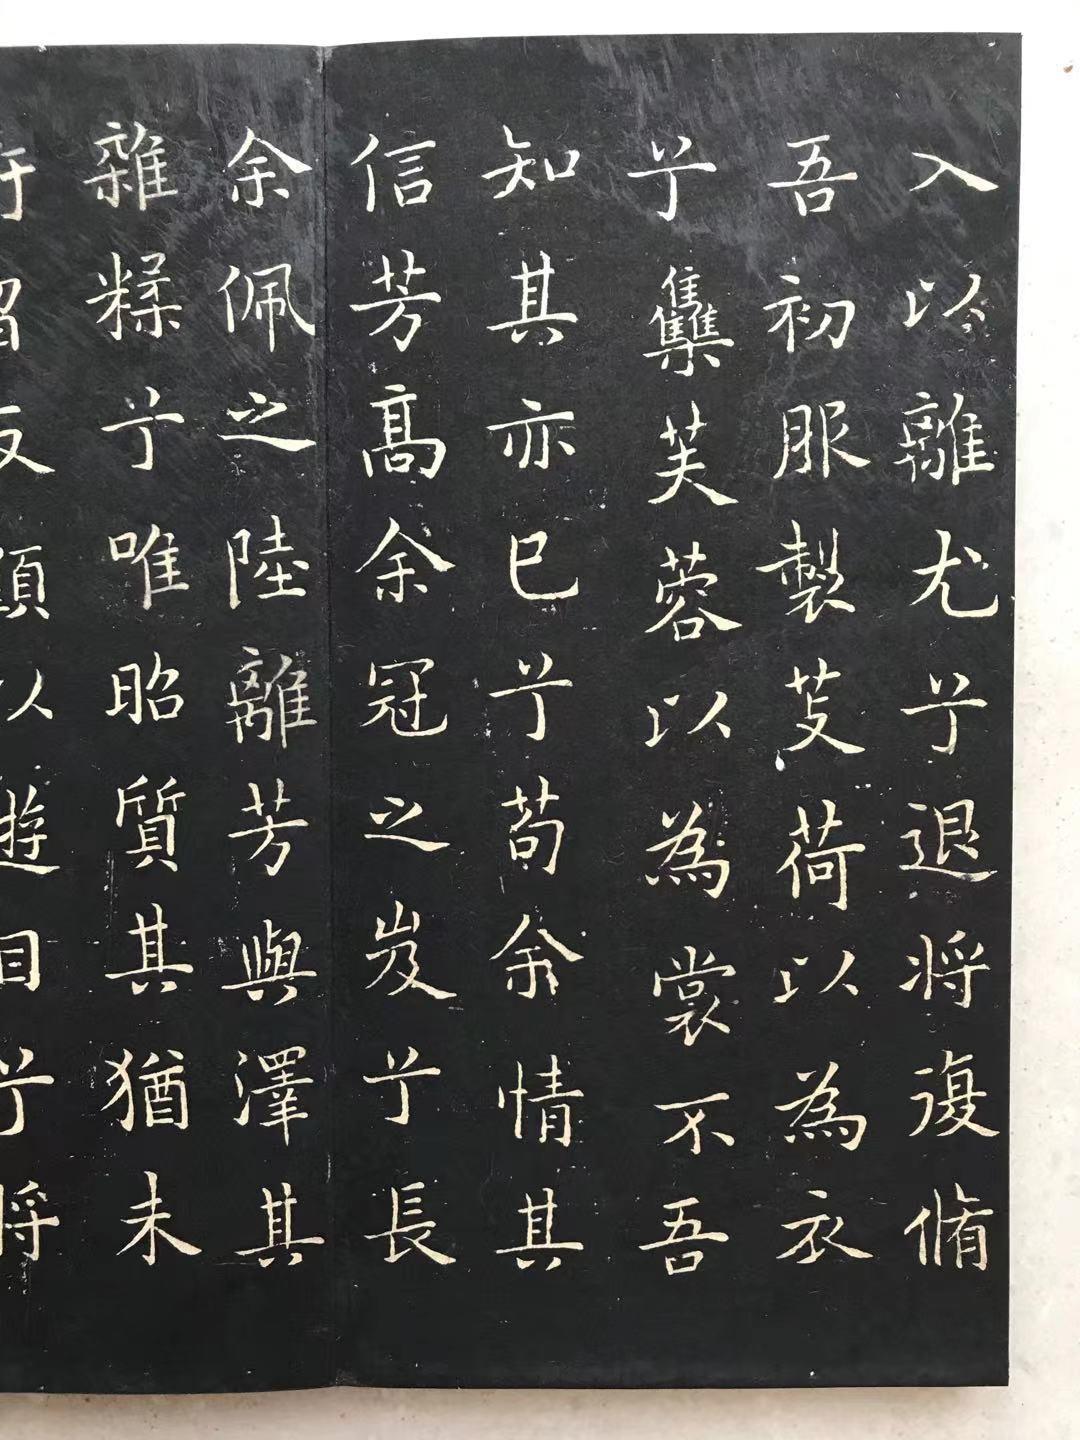 入以離尤兮退将復脩
吾初服製芰荷以為衣
兮雧芙蓉以為裳不吾
知其亦已兮苟余情其
信芳髙余冠之岌兮長
余佩之陸離芳與澤其
雜糅兮唯昭質其猶未
反顧以遊目兮将